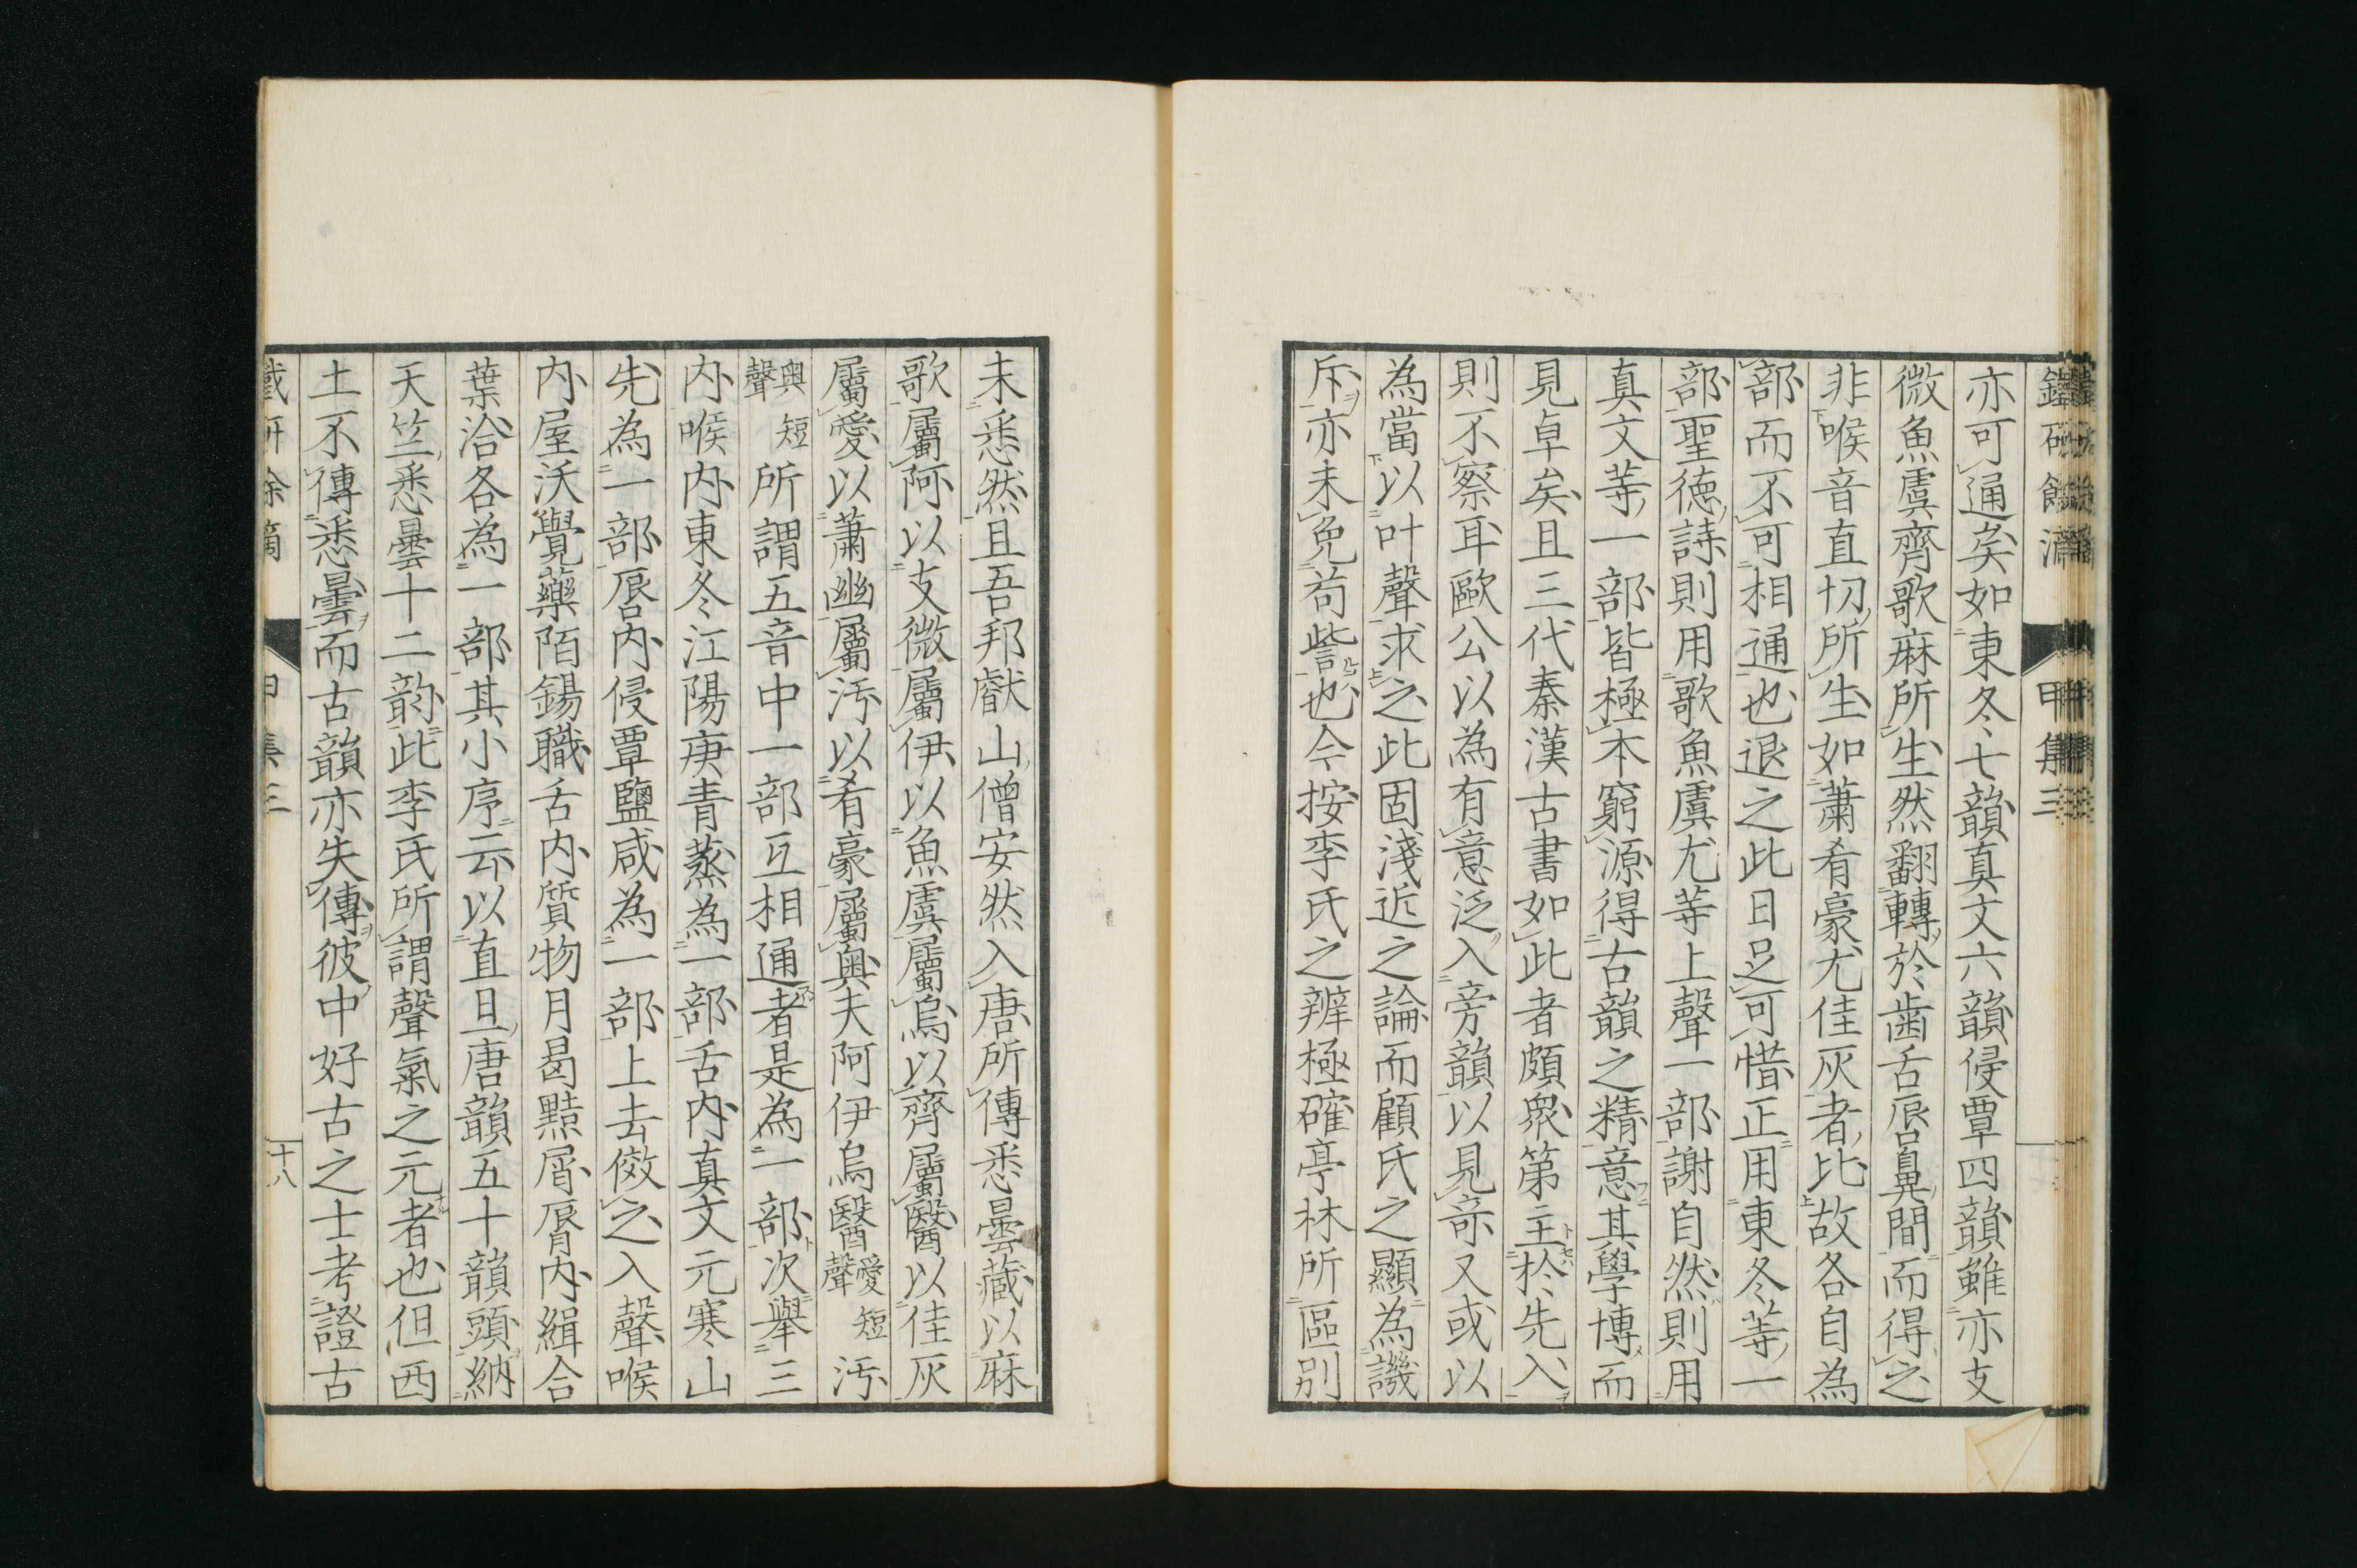 亦可通矣如東冬七韻真文六韻侵覃四韻雖亦支
微魚虞齊歌麻所生然翻轉於齒舌唇鼻間而得之
非喉音直切所生如蕭肴豪尤佳灰者比故各自為
部而不可相通也退之此日足可惜正用東冬等一
部聖德詩則用歌魚虞尤等上聲一部謝自然則用
真文等一部皆極本窮源得古韻之精意其學博而
見卓矣且三代秦漢古書如此者頗衆第主於先入
則不察耳歐公以為有意泛入旁韻以見竒又或以
為當以叶聲求之此固淺近之論而顧氏之顯為譏
斥亦未免苟訾也今按李氏之辨極確亭林所區別
甲集三
未悉然且吾邦獻山僧安然入唐所傳悉曇藏以麻
歌屬阿以支微屬伊以魚虞屬烏以齊屬醫以佳灰
屬愛以蕭幽屬汚以肴豪屬奧夫阿伊烏醫愛聲短汚
奧聲短所謂五音中一部互相通者是為一部次舉三
内喉内東冬江陽庚青蒸為一部舌内真文元寒山
先為一部唇内侵覃鹽咸為一部上去傚之入聲喉
内屋沃覺藥陌錫職舌内質物月曷黠屑脣内緝合
葉洽各為一部其小序云以直旦唐韻五十韻頭納
天竺悉曇十二韵此李氏所謂聲氣之元者也但西
土不傳悉曇而古韻亦失傳彼中好古之士考證古
十八